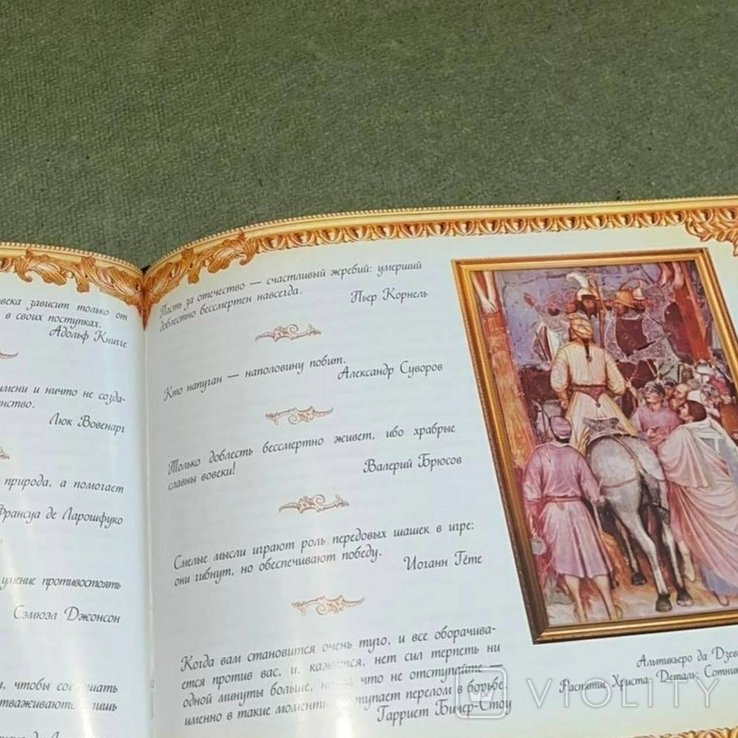 века зависит только от
в своих поступках.
Адольф Книгге
имени и ничто не созда-
Люк Вовенарг
природа, а помогает
Франсуа де Ларошфуко
умение противостоять
Сэмюэл Джонсон
чтобы
лишь
Пасть за отечество — счастливый жребий: умерший
доблестно бессмертен навсегда.
Пьер Корнель
Кто напуган — наполовину побит.
Александр Суворов
Только доблесть бессмертно живет, ибо храбрые
славны вовеки!
Валерий Брюсов
Смелые мысли играют роль передовых шашек в игре:
они гибнут, но обеспечивают победу.
Иоганн Гёте
Когда вам становится очень туго, и все оборачива-
ется против вас, и, кажется, нет сил терпеть ни
одной минуты больше, ни за что не отступайте —
именно в такие моменты наступает перелом в борьбе.
Гарриет Бичер-Стоу
Альтикьеро да Дзев
Распятие Христа. Деталь: Сотник
VIOLITY